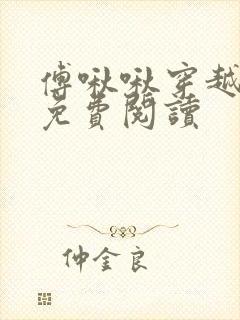 傅啾啾穿越
免費閱讀
仲金良